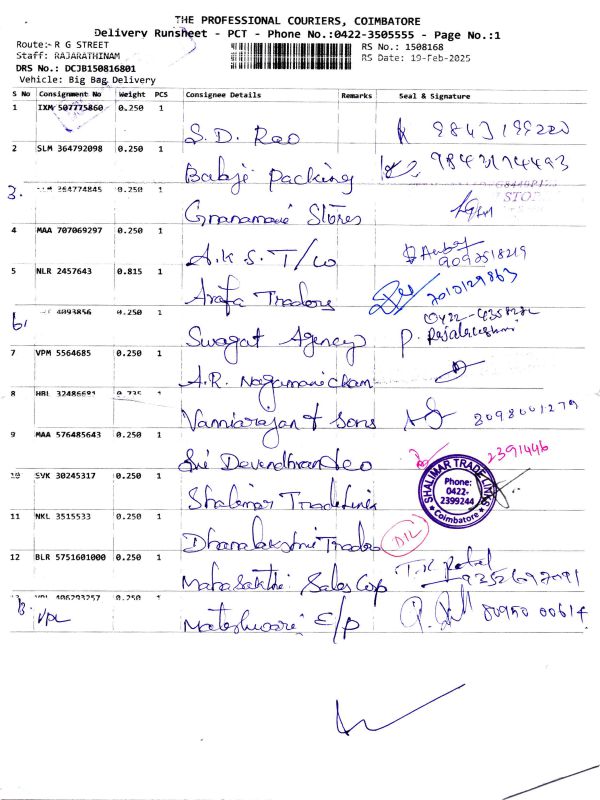 THE PROFESSIONAL COURIERS, COIMBATORE
Delivery Runsheet - PCT - Phone No.:0422-3505555 - Page No.:1
Route:- R G STREET
RS No.: 1508168
Staff: RAJARATHINAM
RS Date: 19-Feb-2025
DRS No.: DCJB150816801
Vehicle: Big Bag Delivery
S No Consignment No Weight PCS Consignee Details Remarks Seal & Signature
1 IXM 507775860 0.250 1
S.D. Rao 9843199220
2 SLM 364792098 0.250 1
Balaji packing 9843174493
3. 364774845 0.250 1
STOP
Gnanamani Stores
4 MAA 707069297 0.250 1
A.K S. T/w 9092518219
5 NLR 2457643 0.815 1
Arafa Traders 7010129863
6. 4093856 0.250 1
0422-4358272
Swagat Agency P. Rajalakshmi
7 VPM 5564685 0.250 1
A.R. Nagamanickam
8 HBL 32486691 0.735 1
Vanniarajan & Sons 8098001279
9 MAA 576485643 0.250 1
Sri Devendhran & co 2391446
10 SVK 30245317 0.250 1
Shalimar Tradelinks
SHALIMAR TRADE LINKS
Phone:
0422-
2399244
Coimbatore
11 NKL 3515533 0.250 1
Dhanalakshmi Traders
12 BLR 5751601000 0.250 1
Mahasakthi Sales Corp T.K Patel
13. VPL 406293257 0.250 1
VPL
Mateshwari E/p 80950 00614